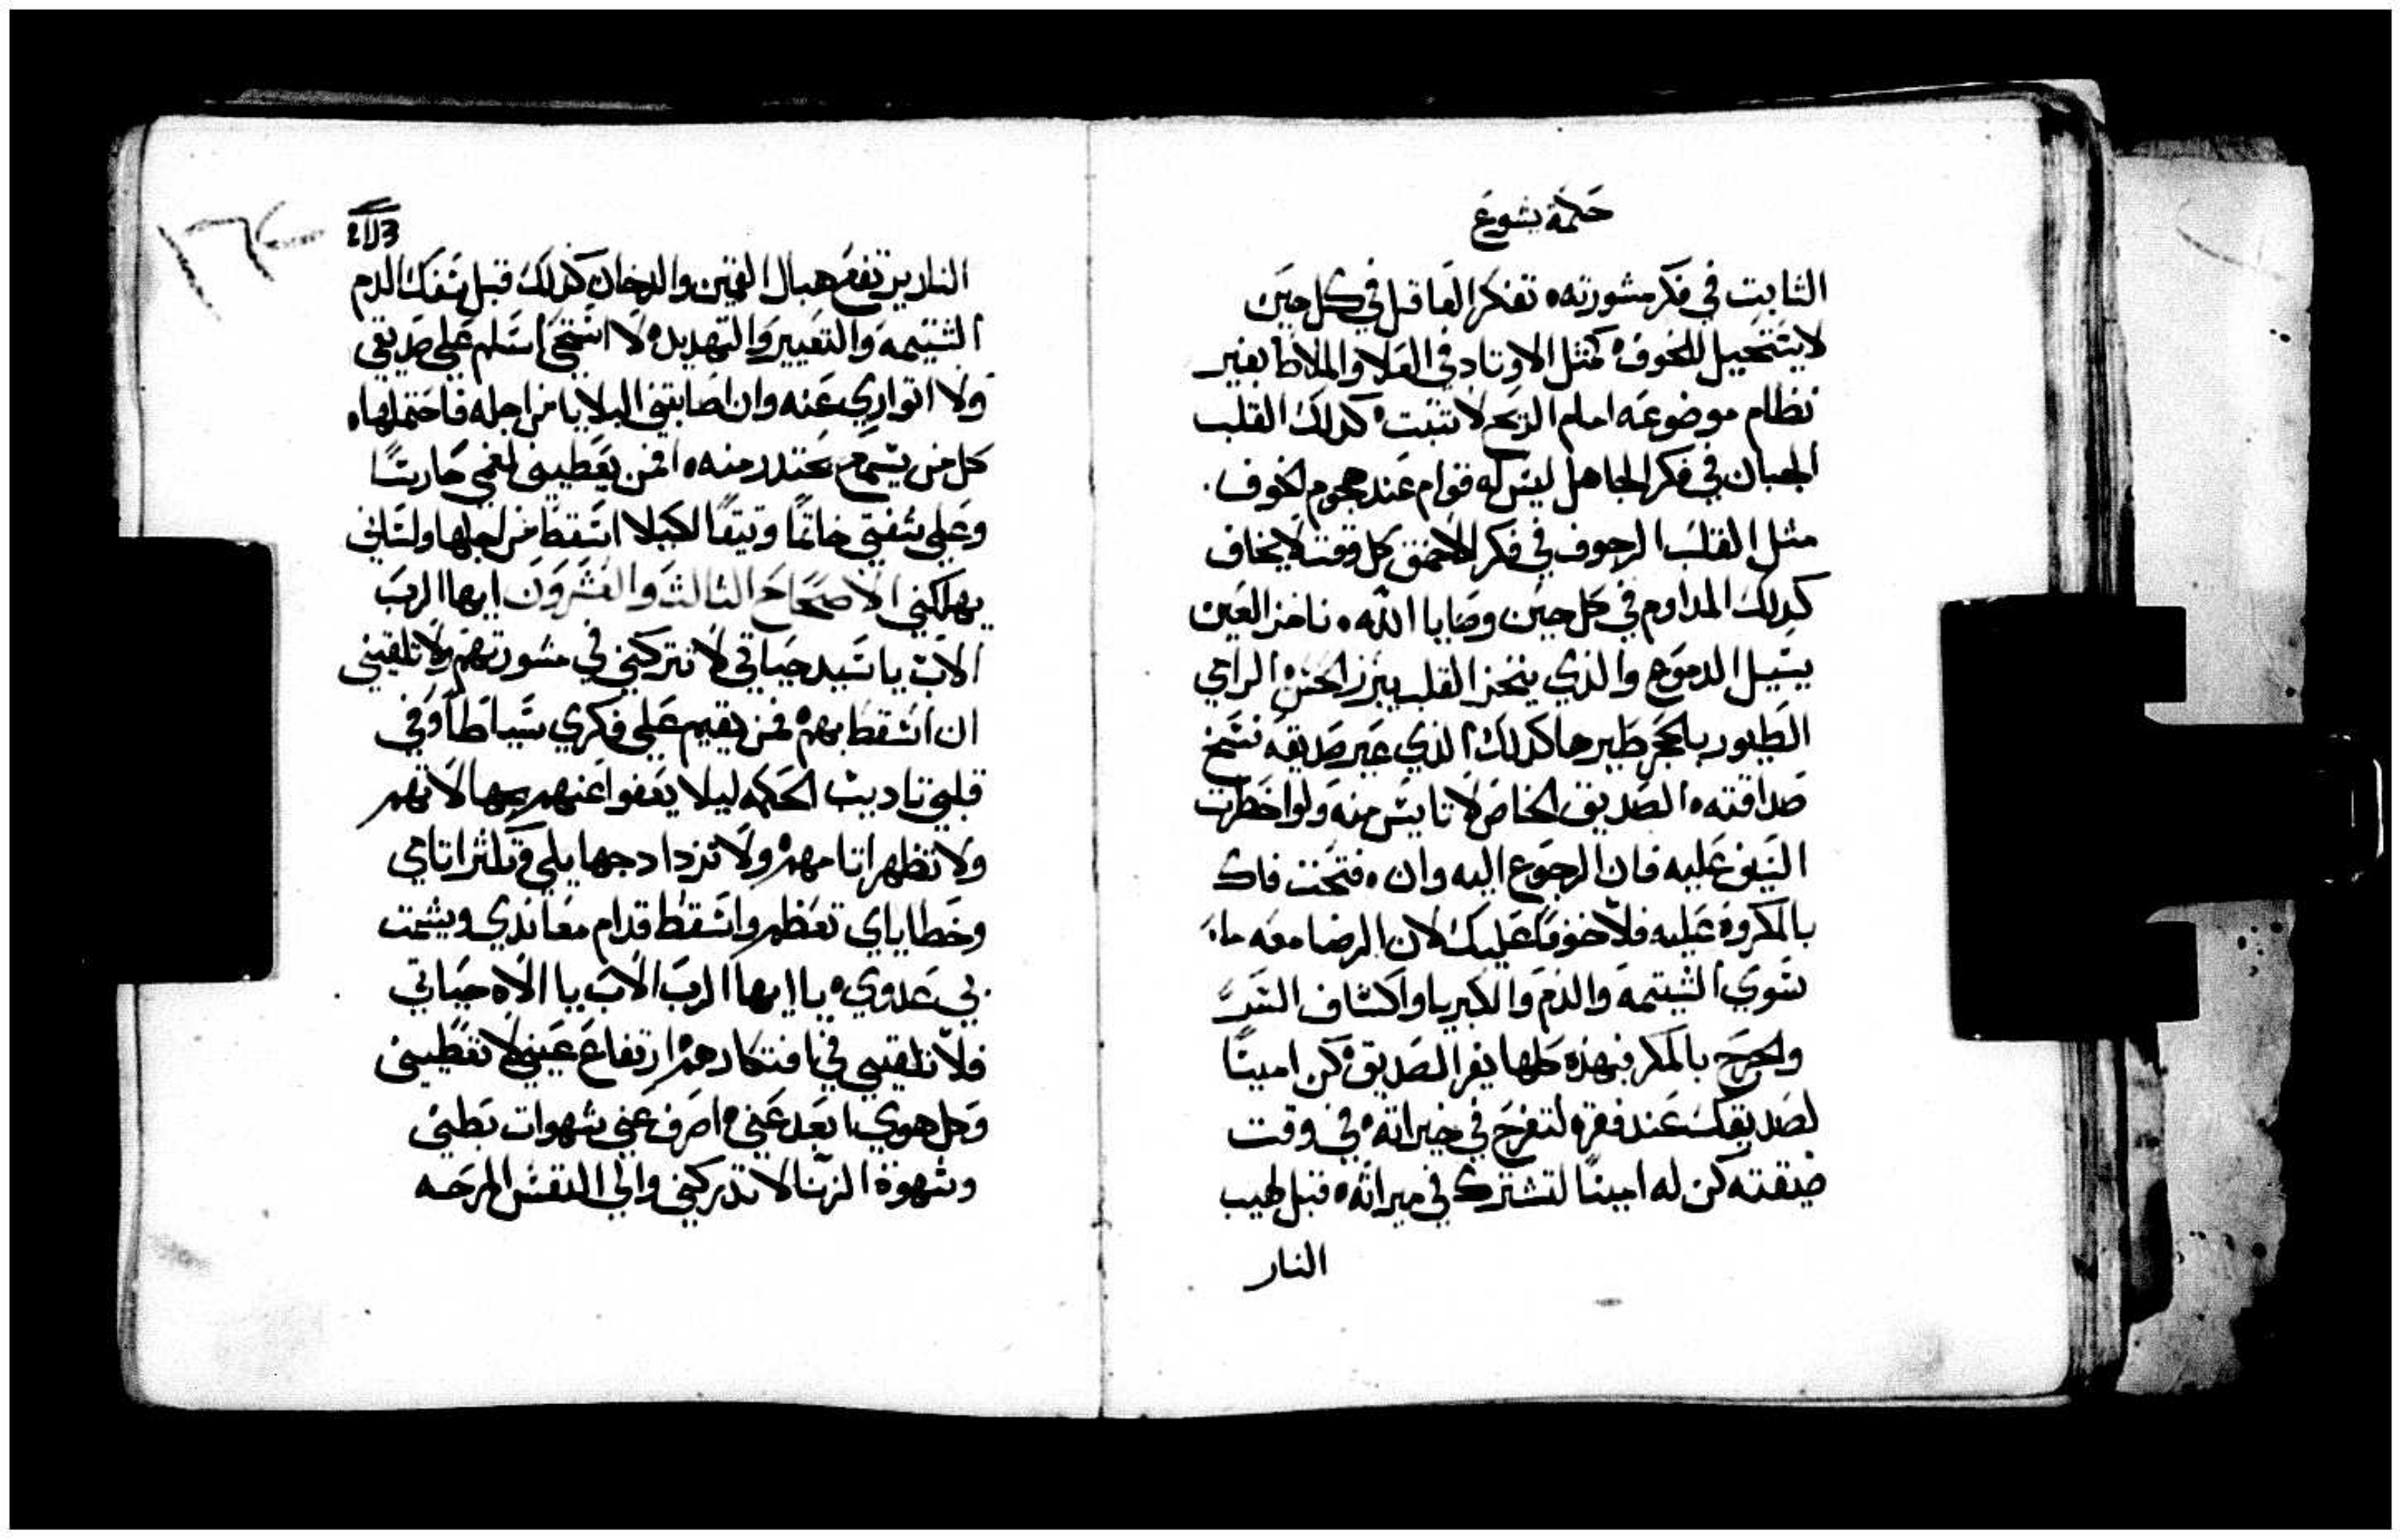 حكمة يشوع
الثابت في فكر مشورته • تفكر العاقل في كل حين
لا يستحيل للخوف • كمثل الاوتاد في العلا والملاط بغير
نظام موضوعه امام الريح لا تثبت • كدلك القلب
الجبان في فكر الجاهل ليس له قوام عند هجوم الخوف .
مثل القلب الرجوف في فكر الاحمق كل وقت لا يخاف
كدلك المداوم في كل حين وصايا الله • ناخز العين
يسيل الدموع والذي ينخز القلب يبرز الحس • الرامي
الطيور بالحجر طيرها كدلك الذي عير صديقه نسخ
صداقته • الصديق الخاص لا تايس منه ولو اخطرت
السيف عليه فان الرجوع اليه وان • فتحت فاك
بالمكروه عليه فلا خوفا عليك لان الرضا معه ما،
سوي الشتيمة والذم والكبريا واكشاف السر
والجرح بالمكر فبهذه كلها يفر الصديق • كن امينا
لصديقك عند فقره لتفرح في خيراته • في وقت
ضيقته كن له امينا لتشترك في ميراثه • قبل لهيب
النار
النار يرتفع هبال القمين والدخان كدلك قبل سفك الدم
الشتيمه والتعيير والتهديد • لا استحي اسلم علي صديقي
ولا اتواري عنه وان اصابتني البلايا من اجله فاحتملها •
كل من يسمع يحتدر منه • افمن يعطيني لفمي حارسًا
وعلي شفتي خاتمًا وتيقًا لكيلا اسقط من اجلها ولساني
يهلكني الاصحاح الثالث والعشرون ايها الرب
الاب يا سيد حياتي لا تتركني في مشورتهم ولا تلقيني
ان اسقط بهم • فمن يقيم علي فكري سياطًا وفي
قلبي تاديب الحكمه ليلا يعفوا عنهم بجهالاتهم
ولا تظهر اتامهم • ولا تزداد جهايلي وتكثر اتامي
وخطاياي تعظم واسقط قدام معاندي ويشمت
بي عدوي • يا ايها الرب الاب يا الاه حياتي
فلا تلقيني في افتكارهم • ارتفاع عيني لا تعطيني
وكل هوي ابعد عني • اصرف عني شهوات بطني
وشهوة الزنا لا تدركني والي النفس المرحه